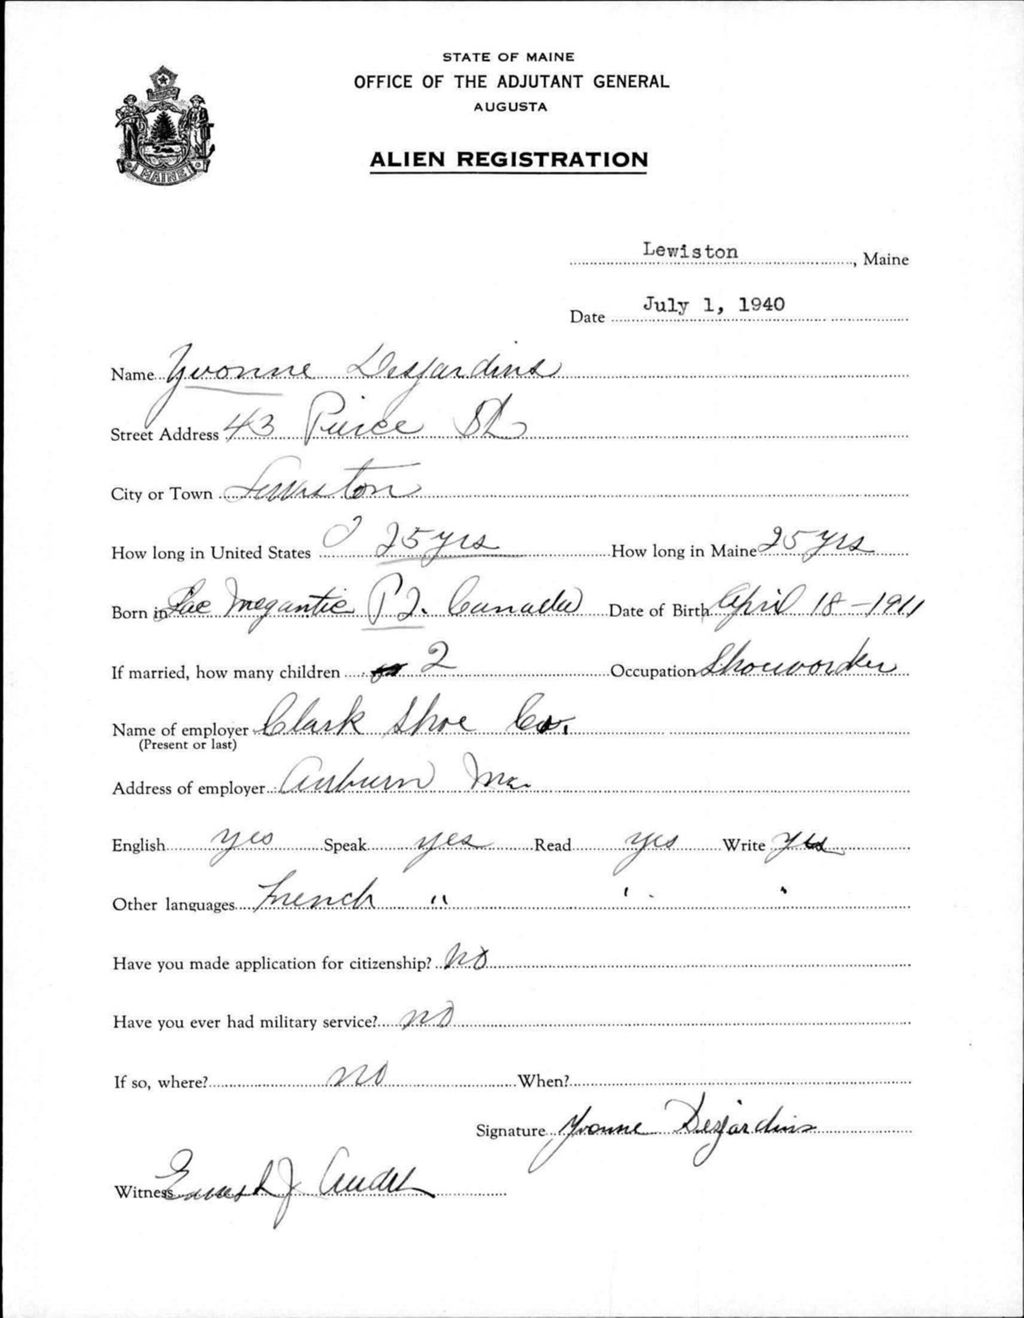 STATE OF MAINE
OFFICE OF THE ADJUTANT GENERAL
AUGUSTA
MAINE
ALIEN REGISTRATION
Lewiston, Maine
Date July 1, 1940
Name Yvonne Desjardins
Street Address 43 Pierce St
City or Town Lewiston
How long in United States 25 yrs How long in Maine 25 yrs
Born in Lac Megantic P Q. Canada Date of Birth April 18 - 1911
If married, how many children 2 Occupation Shoeworker
Name of employer Clark Shoe Co.
(Present or last)
Address of employer Auburn Me.
English yes Speak yes Read yes Write yes
Other languages French " " "
Have you made application for citizenship? No
Have you ever had military service? no
If so, where? no When?
Signature Yvonne Desjardins
Witness Ernest J Audet